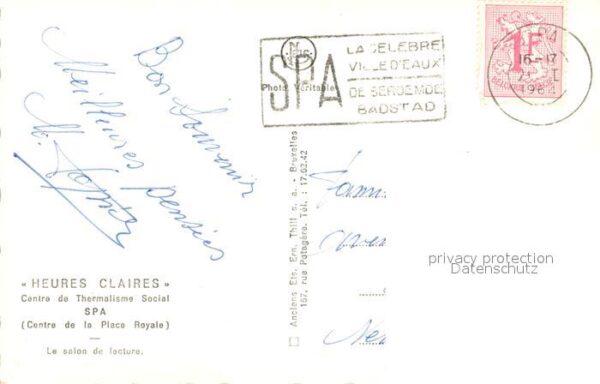 Bon Souvenir
Meilleures pensées
M.
« HEURES CLAIRES »
Centre de Thermalisme Social
SPA
(Centre de la Place Royale)
Le salon de lecture.
N
Photo Véritable
SPA
LA CELEBRE
VILLE D'EAUX
DE BEROEMDE
BADSTAD
SPA
16-17
1F
Anciens Ets. Ern. Thill s. a. - Bruxelles
167, rue Potagère. Tél. : 17.62.42
privacy protection
Datenschutz